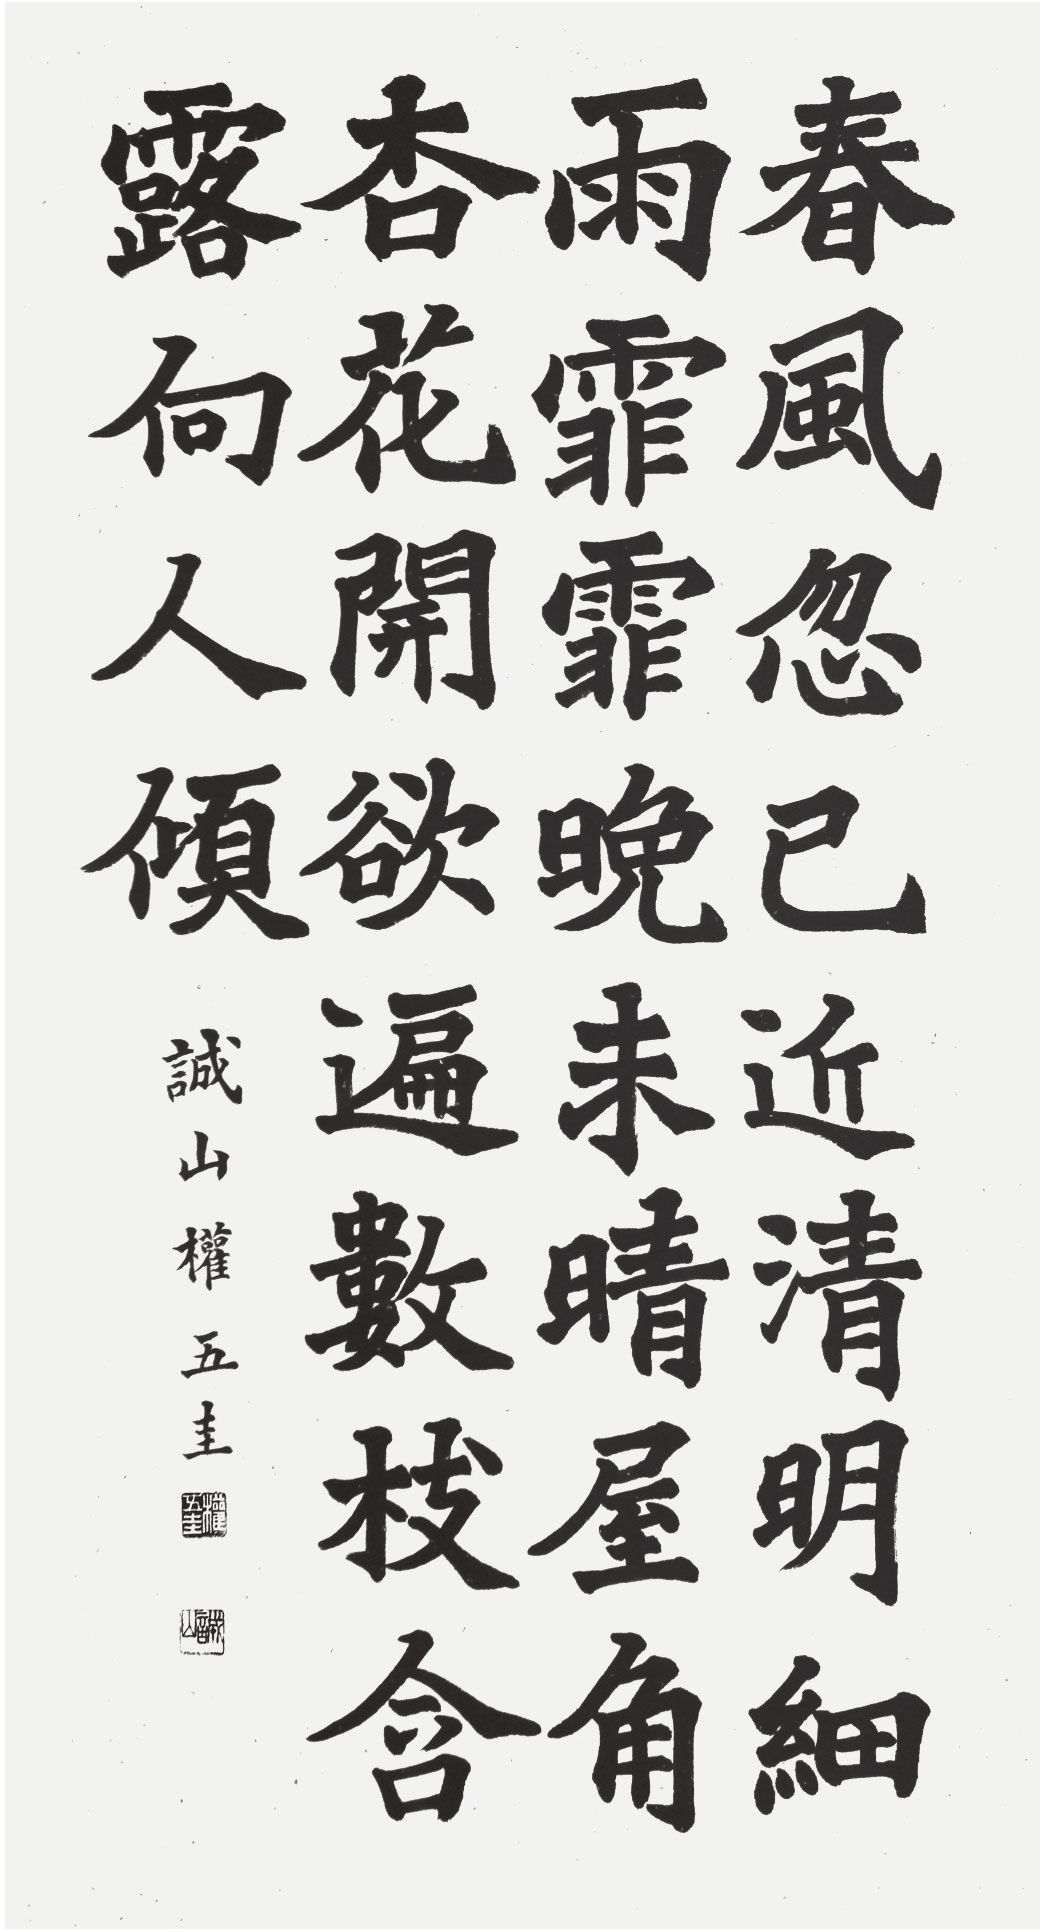 春風忽已近清明細
雨霏霏晩未晴屋角
杏花開欲遍數枝含
露向人傾
誠山權五圭
權五圭
誠山